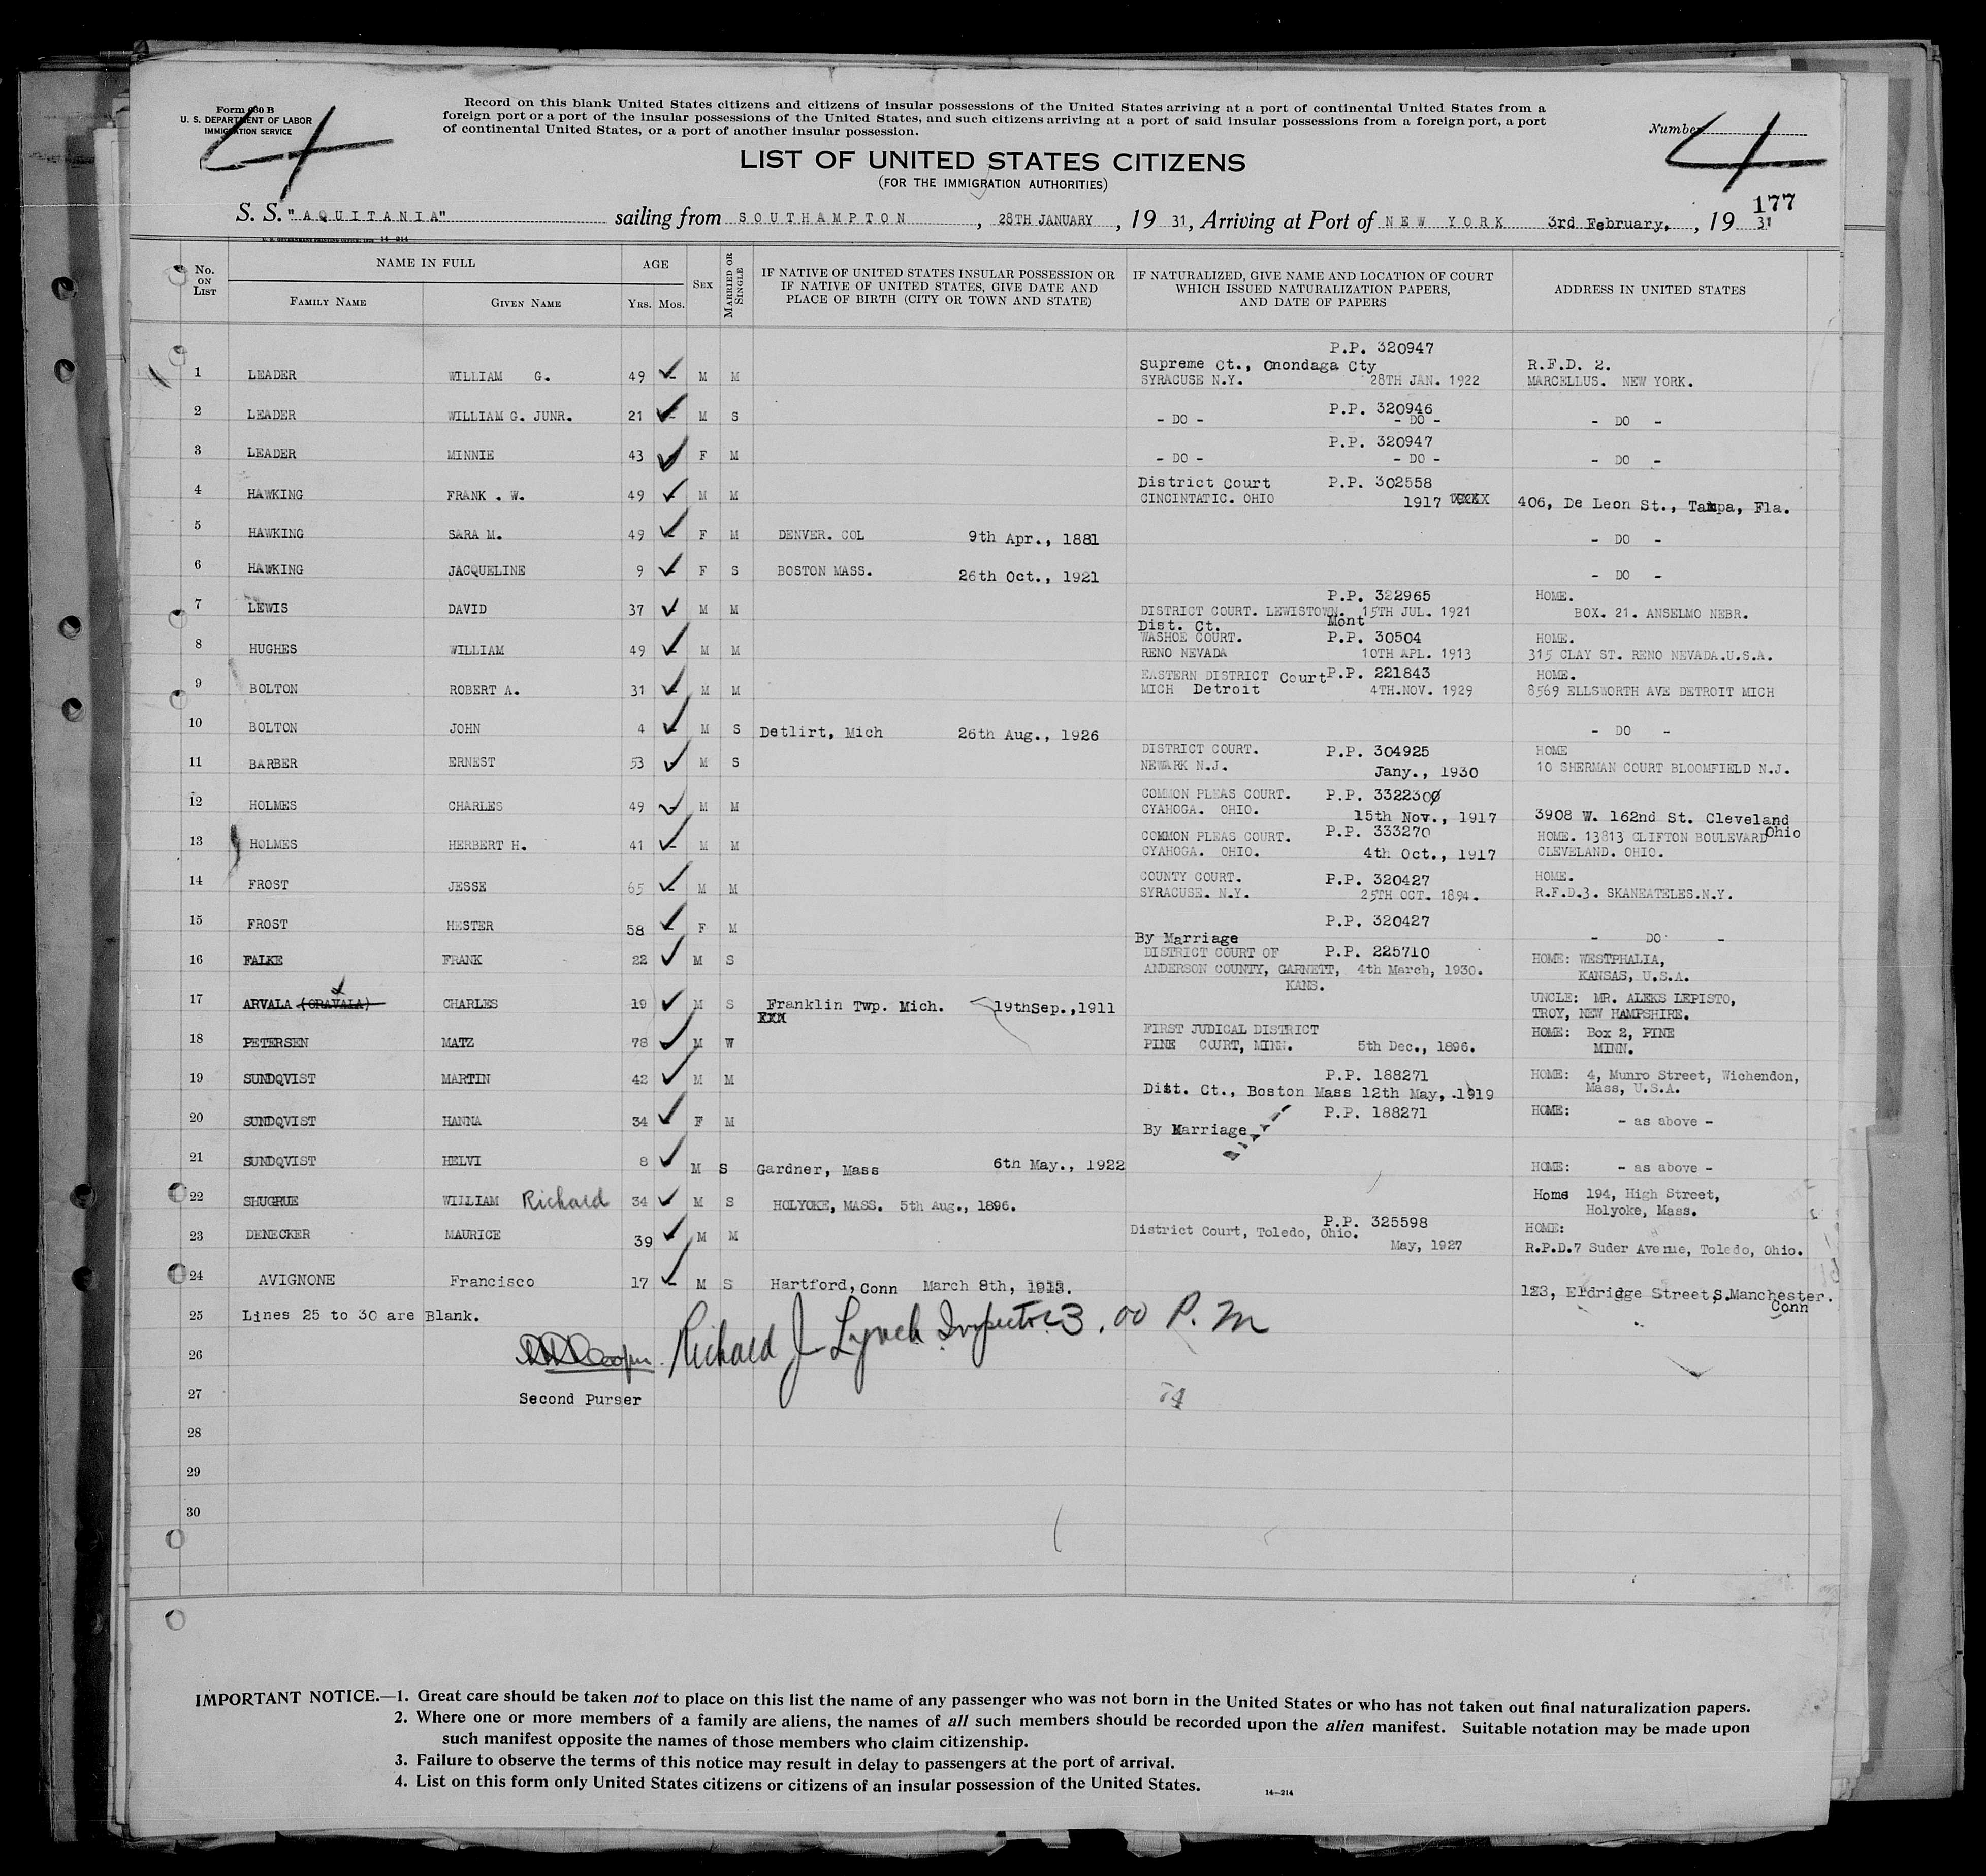 Form 630 B
U. S. DEPARTMENT OF LABOR
IMMIGRATION SERVICE
4
Record on this blank United States citizens and citizens of insular possessions of the United States arriving at a port of continental United States from a
foreign port or a port of the insular possessions of the United States, and such citizens arriving at a port of said insular possessions from a foreign port, a port
of continental United States, or a port of another insular possession.
Number
4
LIST OF UNITED STATES CITIZENS
(FOR THE IMMIGRATION AUTHORITIES)
177
S. S. "AQUITANIA" sailing from SOUTHAMPTON, 28TH JANUARY, 19 31, Arriving at Port of NEW YORK 3rd February, , 19 31
14-214
No. ON LIST
NAME IN FULL
FAMILY NAME GIVEN NAME
AGE
YRS. MOS.
SEX
MARRIED OR SINGLE
IF NATIVE OF UNITED STATES INSULAR POSSESSION OR
IF NATIVE OF UNITED STATES, GIVE DATE AND
PLACE OF BIRTH (CITY OR TOWN AND STATE)
IF NATURALIZED, GIVE NAME AND LOCATION OF COURT
WHICH ISSUED NATURALIZATION PAPERS,
AND DATE OF PAPERS
ADDRESS IN UNITED STATES
P.P. 320947
Supreme Ct., Onondaga Cty R.F.D. 2.
1 LEADER WILLIAM G. 49 M M SYRACUSE N.Y. 28TH JAN. 1922 MARCELLUS. NEW YORK.
P.P. 320946
2 LEADER WILLIAM G. JUNR. 21 M S - DO - - DO - - DO -
P.P. 320947
3 LEADER MINNIE 43 F M - DO - - DO - - DO -
District Court P.P. 302558
4 HAWKING FRANK . W. 49 M M CINCINTATIC. OHIO 1917 XXXX 406, De Leon St., Tampa, Fla.
5 HAWKING SARA M. 49 F M DENVER. COL 9th Apr., 1881 - DO -
6 HAWKING JACQUELINE 9 F S BOSTON MASS. 26th Oct., 1921 - DO -
P.P. 322965 HOME.
7 LEWIS DAVID 37 M M DISTRICT COURT. LEWISTOWN. 15TH JUL. 1921 BOX. 21. ANSELMO NEBR.
Mont
Dist. Ct.
WASHOE COURT. P.P. 30504 HOME.
8 HUGHES WILLIAM 49 M M RENO NEVADA 10TH APL. 1913 315 CLAY ST. RENO NEVADA.U.S.A.
EASTERN DISTRICT Court P.P. 221843 HOME.
9 BOLTON ROBERT A. 31 M M MICH Detroit 4TH.NOV. 1929 8569 ELLSWORTH AVE DETROIT MICH
10 BOLTON JOHN 4 M S Detlirt, Mich 26th Aug., 1926 - DO -
DISTRICT COURT. P.P. 304925 HOME
11 BARBER ERNEST 53 M S NEWARK N.J. Jany., 1930 10 SHERMAN COURT BLOOMFIELD N.J.
COMMON PLEAS COURT. P.P. 332230
12 HOLMES CHARLES 49 M M CYAHOGA. OHIO. 15th Nov., 1917 3908 W. 162nd St. Cleveland
Ohio
COMMON PLEAS COURT. P.P. 333270 HOME. 13813 CLIFTON BOULEVARD
13 HOLMES HERBERT H. 41 M M CYAHOGA. OHIO. 4th Oct., 1917 CLEVELAND. OHIO.
COUNTY COURT. P.P. 320427 HOME.
14 FROST JESSE 65 M M SYRACUSE. N.Y. 25TH OCT. 1894. R.F.D.3. SKANEATELES.N.Y.
P.P. 320427
15 FROST HESTER 58 F M By Marriage - DO -
DISTRICT COURT OF P.P. 225710 HOME: WESTPHALIA,
16 FALKE FRANK 22 M S ANDERSON COUNTY, GARNETT, 4th March, 1930. KANSAS, U.S.A.
KANS.
17 ARVALA (ORAVALA) CHARLES 19 M S Franklin Twp. Mich. 19thSep.,1911 UNCLE: MR. ALEKS LEPISTO,
XXX TROY, NEW HAMPSHIRE.
FIRST JUDICIAL DISTRICT HOME: Box 2, PINE
18 PETERSEN MATZ 78 M W PINE COURT, MINN. 5th Dec., 1896. MINN.
P.P. 188271 HOME: 4, Munro Street, Wichendon,
19 SUNDQVIST MARTIN 42 M M Dist. Ct., Boston Mass 12th May, 1919 Mass, U.S.A.
P.P. 188271 HOME:
20 SUNDQVIST HANNA 34 F M By Marriage - as above -
21 SUNDQVIST HELVI 8 M S Gardner, Mass 6th May., 1922 HOME: - as above -
22 SHUGRUE WILLIAM Richard 34 M S HOLYOKE, MASS. 5th Aug., 1896. Home 194, High Street,
Holyoke, Mass.
P.P. 325598 HOME:
23 DENECKER MAURICE 39 M M District Court, Toledo, Ohio. May, 1927 R.P.D.7 Suder Avenue, Toledo, Ohio.
24 AVIGNONE Francisco 17 M S Hartford, Conn March 8th, 1913. 123, Eldridge Street, S.Manchester.
Conn
25 Lines 25 to 30 are Blank.
26 Richard J Lynch Inspector 3.00 P.M
27 Second Purser 74
28
29
30
IMPORTANT NOTICE.—1. Great care should be taken not to place on this list the name of any passenger who was not born in the United States or who has not taken out final naturalization papers.
2. Where one or more members of a family are aliens, the names of all such members should be recorded upon the alien manifest. Suitable notation may be made upon
such manifest opposite the names of those members who claim citizenship.
3. Failure to observe the terms of this notice may result in delay to passengers at the port of arrival.
4. List on this form only United States citizens or citizens of an insular possession of the United States.
14—214